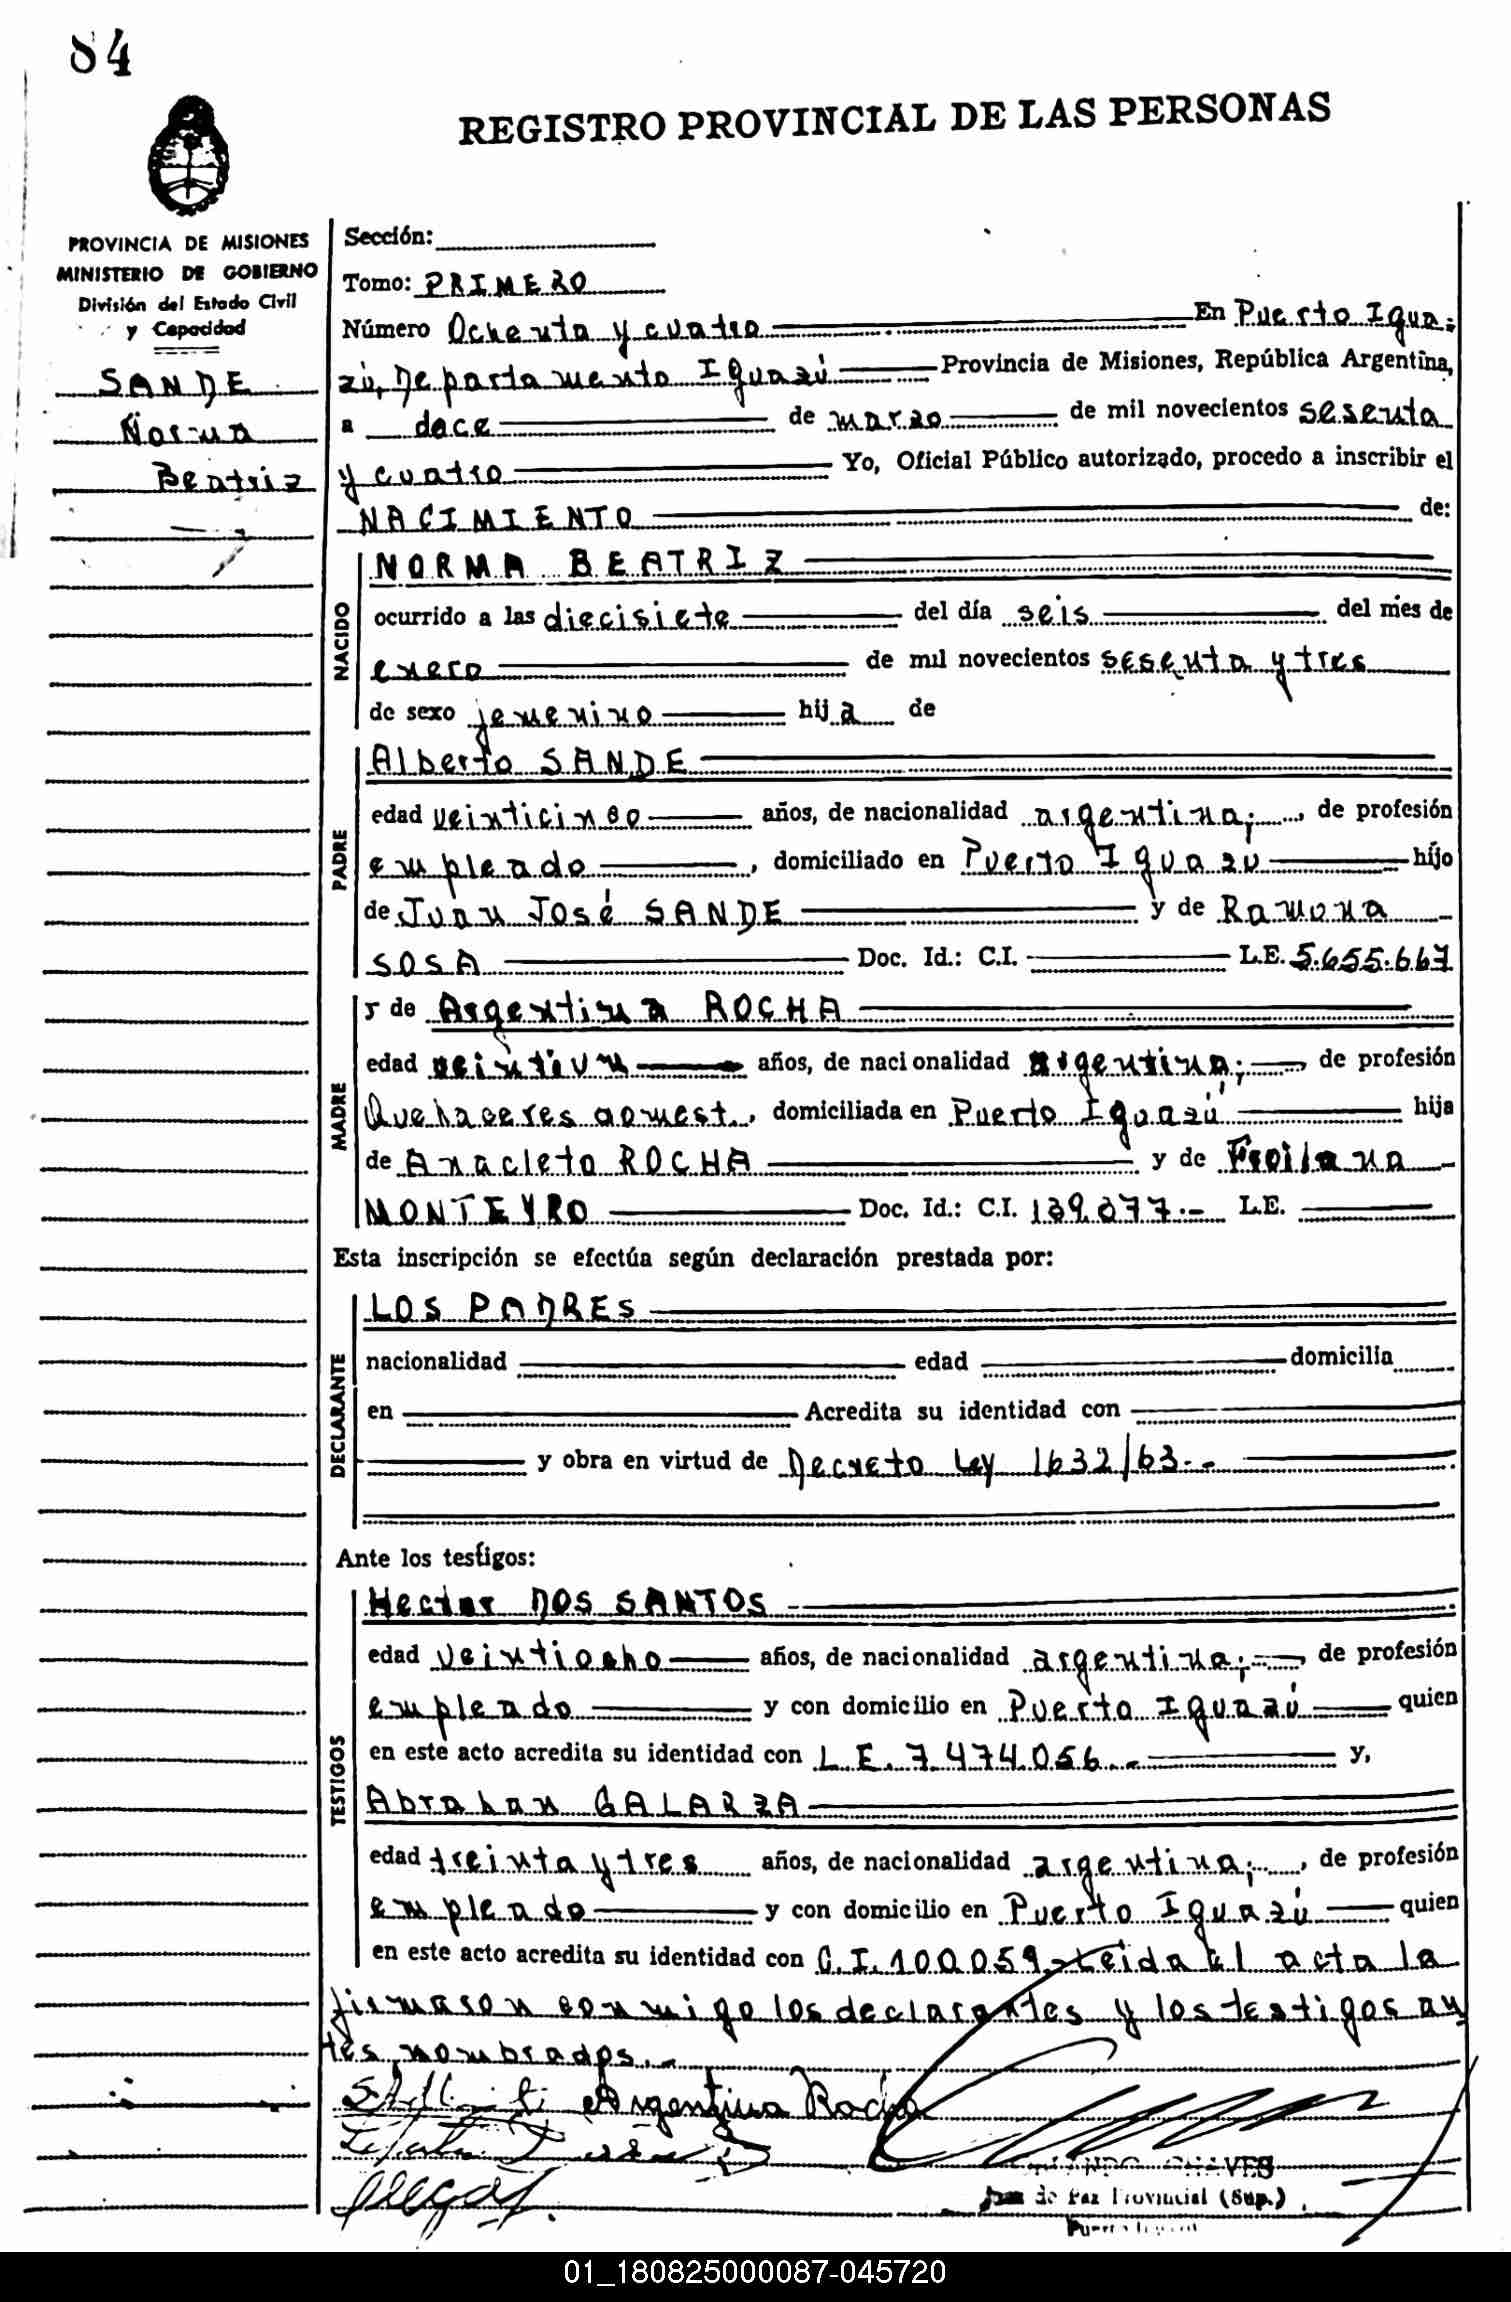 84
REGISTRO PROVINCIAL DE LAS PERSONAS
PROVINCIA DE MISIONES
MINISTERIO DE GOBIERNO
División del Estado Civil
y Capacidad
SANDE
Norma
Beatriz
Sección:
Tomo: PRIMERO
Número Ochenta y cuatro En Puerto Igua-
zú, Departamento Iguazú Provincia de Misiones, República Argentina,
a doce de marzo de mil novecientos sesenta
y cuatro Yo, Oficial Público autorizado, procedo a inscribir el
NACIMIENTO de:
NACIDO
NORMA BEATRIZ
ocurrido a las diecisiete del día seis del mes de
enero de mil novecientos sesenta y tres
de sexo femenino hija de
PADRE
Alberto SANDE
edad veinticinco años, de nacionalidad argentina; , de profesión
empleado , domiciliado en Puerto Iguazú hijo
de Juan José SANDE y de Ramona
SOSA Doc. Id.: C.I. L.E. 5.655.667
MADRE
y de Argentina ROCHA
edad veintiun años, de nacionalidad argentina; , de profesión
Quehaceres domest. , domiciliada en Puerto Iguazú hija
de Anacleto ROCHA y de Froilana
MONTEYRO Doc. Id.: C.I. L.E.
Esta inscripción se efectúa según declaración prestada por:
DECLARANTE
LOS PADRES
nacionalidad edad domicilia
en Acredita su identidad con
y obra en virtud de Decreto Ley 1632/63.-
Ante los testigos:
TESTIGOS
Hector DOS SANTOS
edad veintiocho años, de nacionalidad argentina; , de profesión
empleado y con domicilio en Puerto Iguazú quien
en este acto acredita su identidad con L.E. 7.474.056.- y,
Abrahan GALARZA
edad treinta y tres años, de nacionalidad argentina; , de profesión
empleado y con domicilio en Puerto Iguazú quien
en este acto acredita su identidad con C.I. 100.059.- Leida el acta la
firmaron conmigo los declarantes y los testigos an
tes nombrados.-
Argentina Rocha
CHAVES
Juez de Paz Provincial (Sup.)
01_180825000087-045720